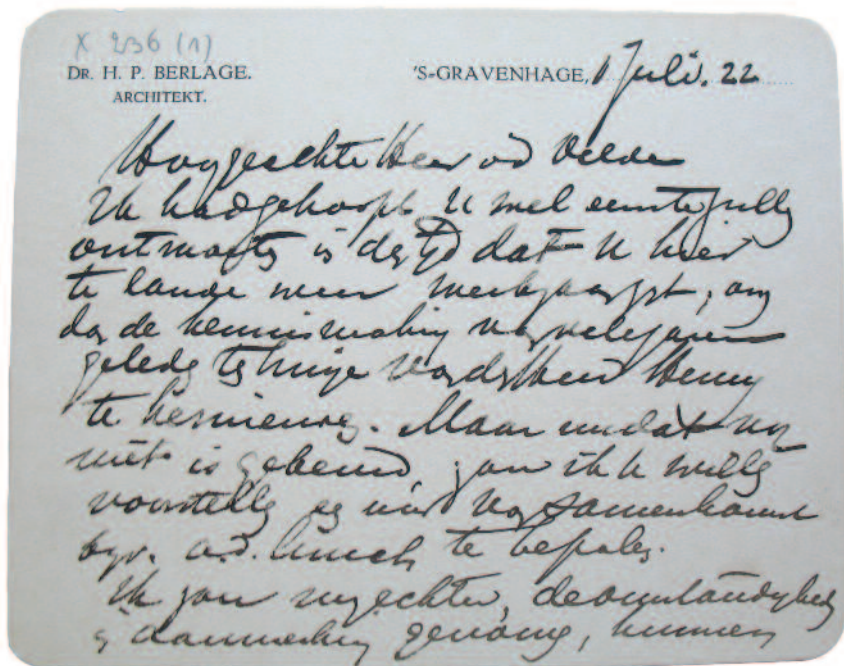 X 236 (1)
DR. H. P. BERLAGE.
ARCHITEKT.
'S-GRAVENHAGE, 1 Juli. 22
Hooggeachte Heer vd Velde
Ik had gehoopt U wel eens te zullen
ontmoeten in den tijd dat U hier
te lande weer werkzaam zijt, om
dan de kennismaking van vele jaren
geleden ten huize van den Heer Henny
te hernieuwen. Maar omdat
niet is gebeurd, zou ik U willen
voorstellen een uur van samenkomst
bijv. a.d. lunch te bepalen.
Ik zou mij echter, de omstandigheden
in aanmerking genomen, kunnen